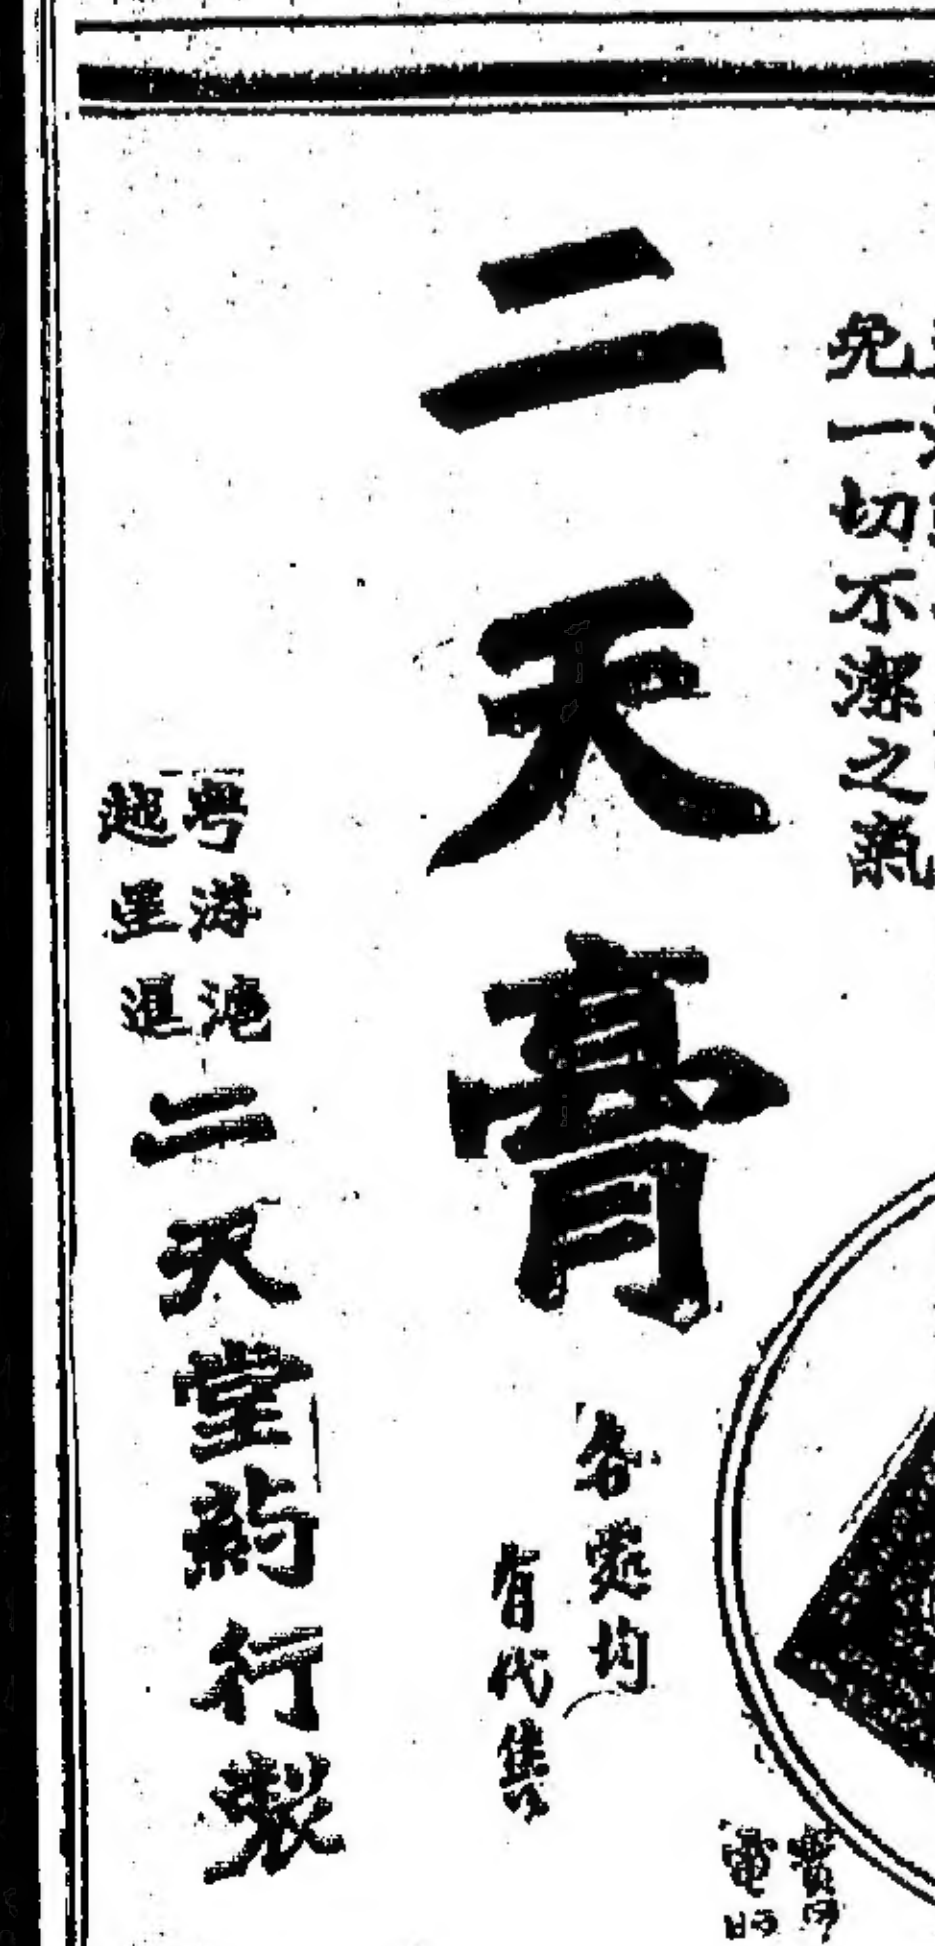 免一切不潔之氣
二天膏
各處均
有代售
粤港滬
越星暹
二天堂葯行製
電